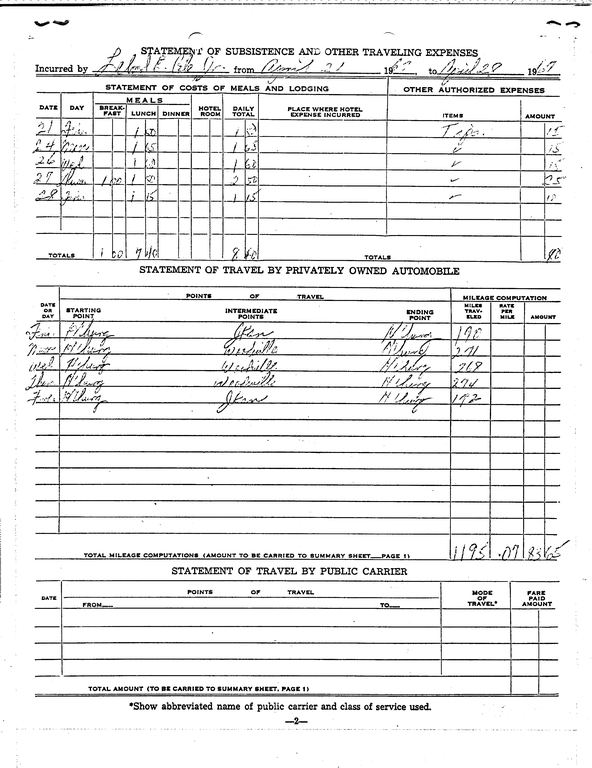 STATEMENT OF SUBSISTENCE AND OTHER TRAVELING EXPENSES
Incurred by Jr. from April 21 196 to April 28 1967
STATEMENT OF COSTS OF MEALS AND LODGING OTHER AUTHORIZED EXPENSES
MEALS
DATE DAY BREAK-FAST LUNCH DINNER HOTEL ROOM DAILY TOTAL PLACE WHERE HOTEL EXPENSE INCURRED ITEMS AMOUNT
21 Fri. 1 50 1 50 15
24 1 65 1 65 ✓ 15
26 Wed 1 60 1 60 ✓ 15
27 1 00 1 50 2 50 ✓ 25
28 Fri 1 15 1 15 ✓ 10
TOTALS 1 00 7 40 8 40 TOTALS 80
STATEMENT OF TRAVEL BY PRIVATELY OWNED AUTOMOBILE
POINTS OF TRAVEL MILEAGE COMPUTATION
DATE OR DAY STARTING POINT INTERMEDIATE POINTS ENDING POINT MILES TRAV-ELED RATE PER MILE AMOUNT
Fri. H'burg Jxn 190
H'burg Woodville 271
Wed. H'burg Woodville H'burg 268
H'burg Woodville H'burg 274
Fri. H'burg Jxn H'burg 192
TOTAL MILEAGE COMPUTATIONS (AMOUNT TO BE CARRIED TO SUMMARY SHEET—PAGE 1) 1195 .07 83 65
STATEMENT OF TRAVEL BY PUBLIC CARRIER
DATE POINTS OF TRAVEL MODE OF TRAVEL* FARE PAID AMOUNT
FROM— TO—
TOTAL AMOUNT (TO BE CARRIED TO SUMMARY SHEET, PAGE 1)
*Show abbreviated name of public carrier and class of service used.
—2—